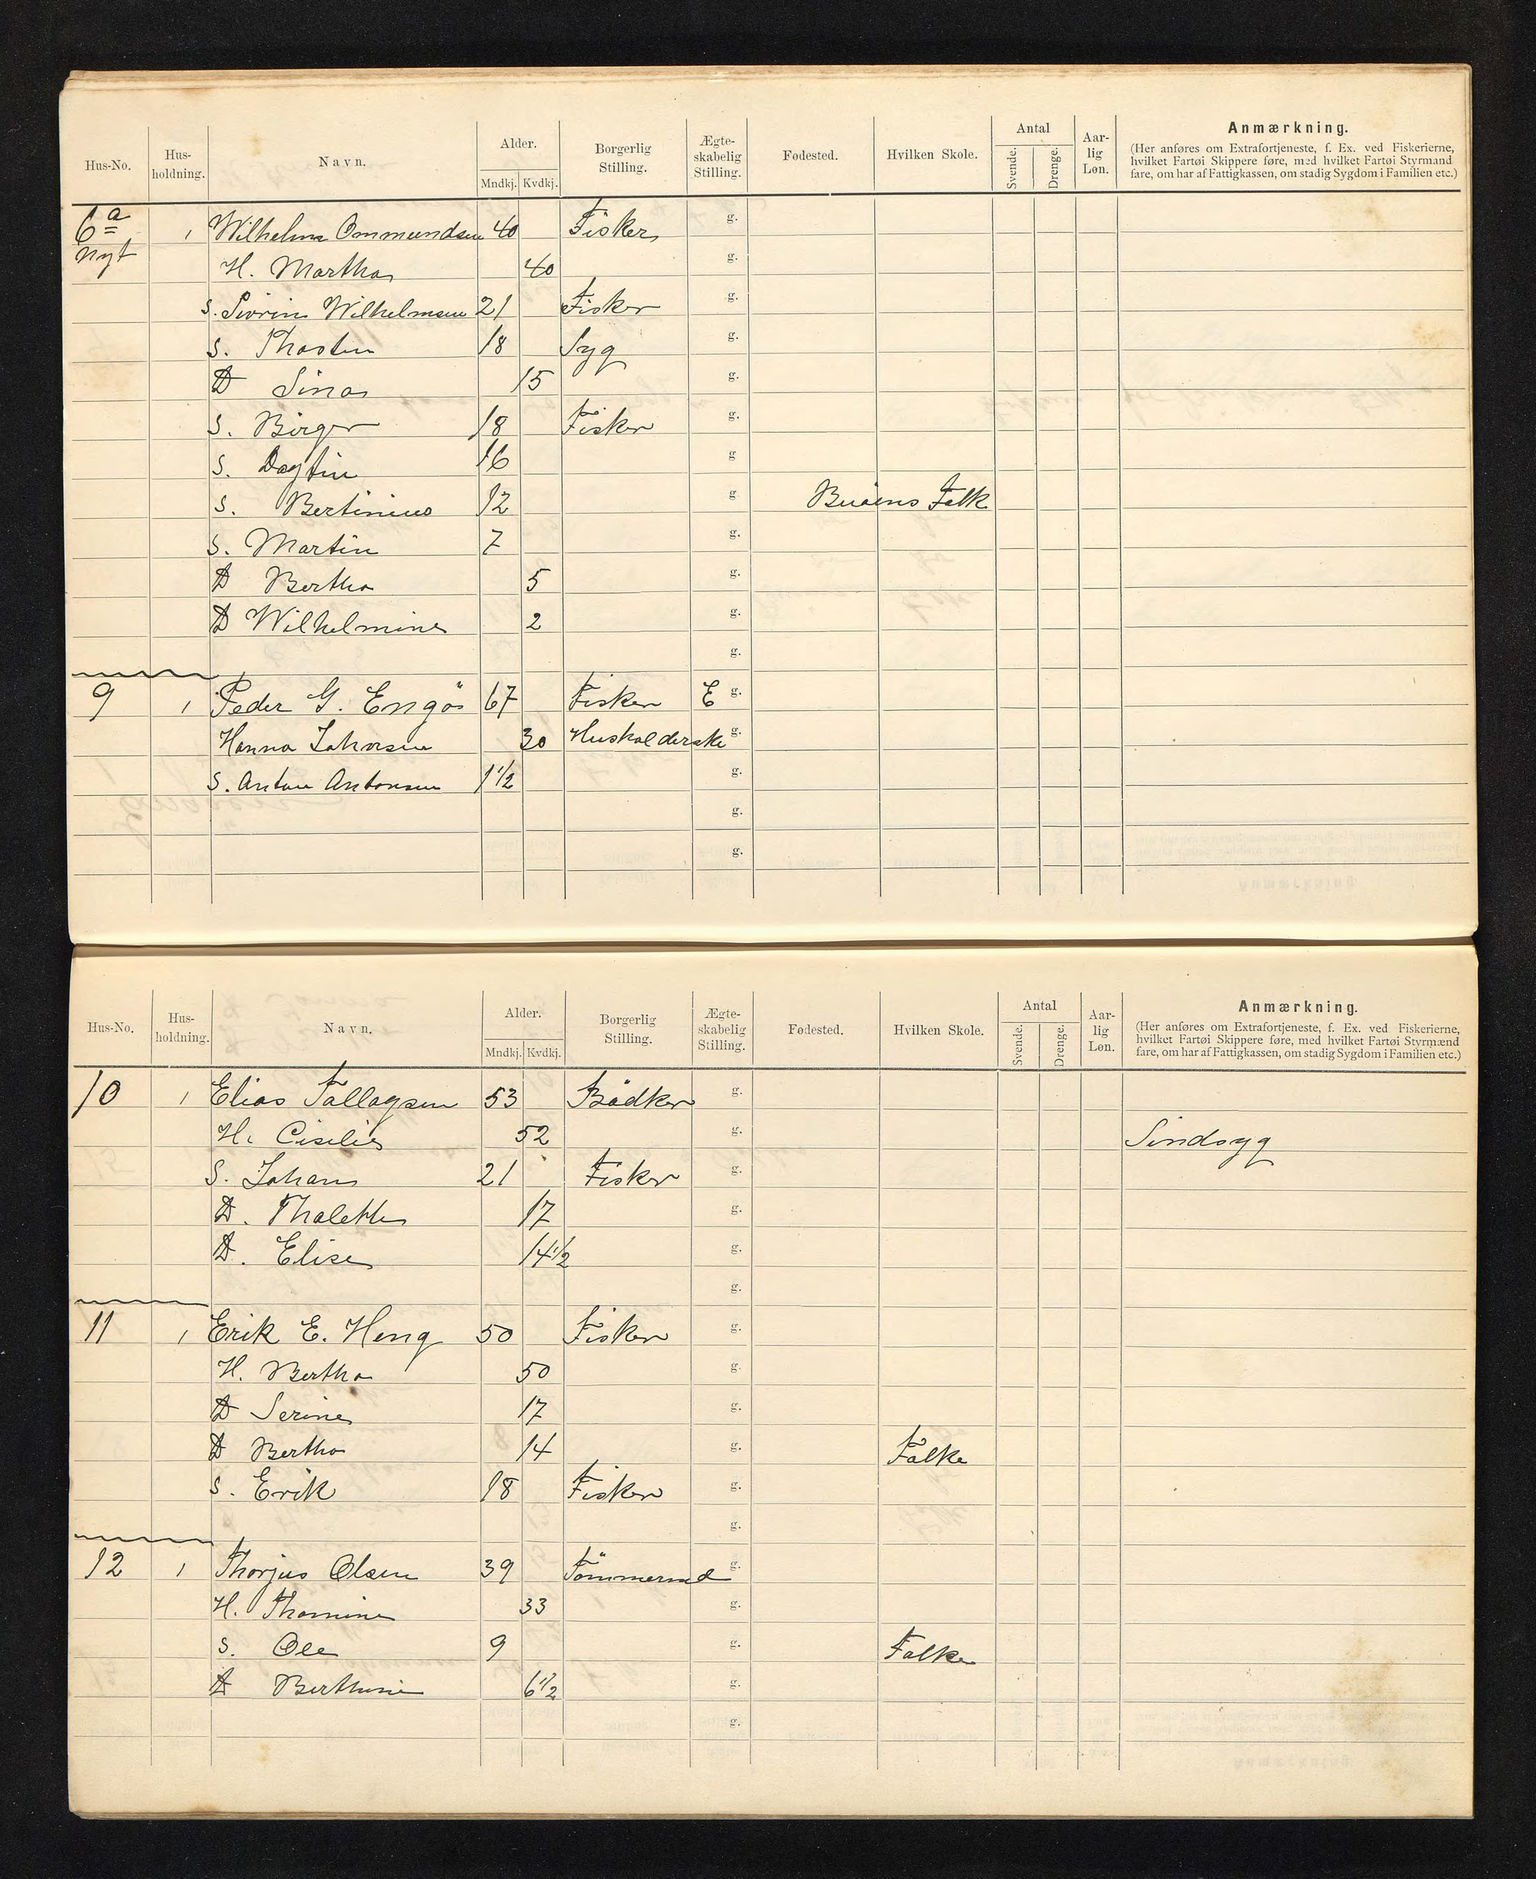 Hus-No. Hus-holdning. Navn. Alder. Mndkj. Kvdkj. Borgerlig Stilling. Ægte-skabelig Stilling. Fødested. Hvilken Skole. Antal Svende. Drenge. Aar-lig Løn. Anmærkning.
(Her anføres om Extrafortjeneste, f. Ex. ved Fiskerierne,
hvilket Fartøi Skippere føre, med hvilket Fartøi Styrmand
fare, om har af Fattigkassen, om stadig Sygdom i Familien etc.)
6a 1 Wilhelm Ommundsen 40 Fisker g.
nyt H. Martha 40 g.
S. Sivrin Wilhelmsen 21 Fisker g.
S. Thosten 18 Syg g.
D Sina 15 g.
S. Birger 18 Fisker g.
S. Dagfin 16 g
S. Bertinius 12 g Buøens Falk
S. Martin 7 g.
D Bertha 5 g.
D Wilhelmine 2 g.
g.
9 1 Peder G. Engø 67 Fisker E g.
Hanna Johnsen 30 Husholderske g.
S. Anton Antonsen 1 1/2 g.
g.
g.
Hus-No. Hus-holdning. Navn. Alder. Mndkj. Kvdkj. Borgerlig Stilling. Ægte-skabelig Stilling. Fødested. Hvilken Skole. Antal Svende. Drenge. Aar-lig Løn. Anmærkning.
(Her anføres om Extrafortjeneste, f. Ex. ved Fiskerierne,
hvilket Fartøi Skippere føre, med hvilket Fartøi Styrmænd
fare, om har af Fattigkassen, om stadig Sygdom i Familien etc.)
10 1 Elias Tallagsen 53 Bødker g.
H. Cisilie 52 g. Sindsyg
S. Johan 21 Fisker g.
D. Thalette 17 g.
D. Elise 14 1/2 g.
g.
11 1 Erik E. Heng 50 Fisker g.
H. Bertha 50 g.
D Serine 17 g.
D Bertha 14 g. Falke
S. Erik 18 Fisker g.
g.
12 1 Thorjus Olsen 39 Tømmermd g.
H. Thomine 33 g.
S. Ole 9 g. Falke
D Berthine 6 1/2 g.
g.